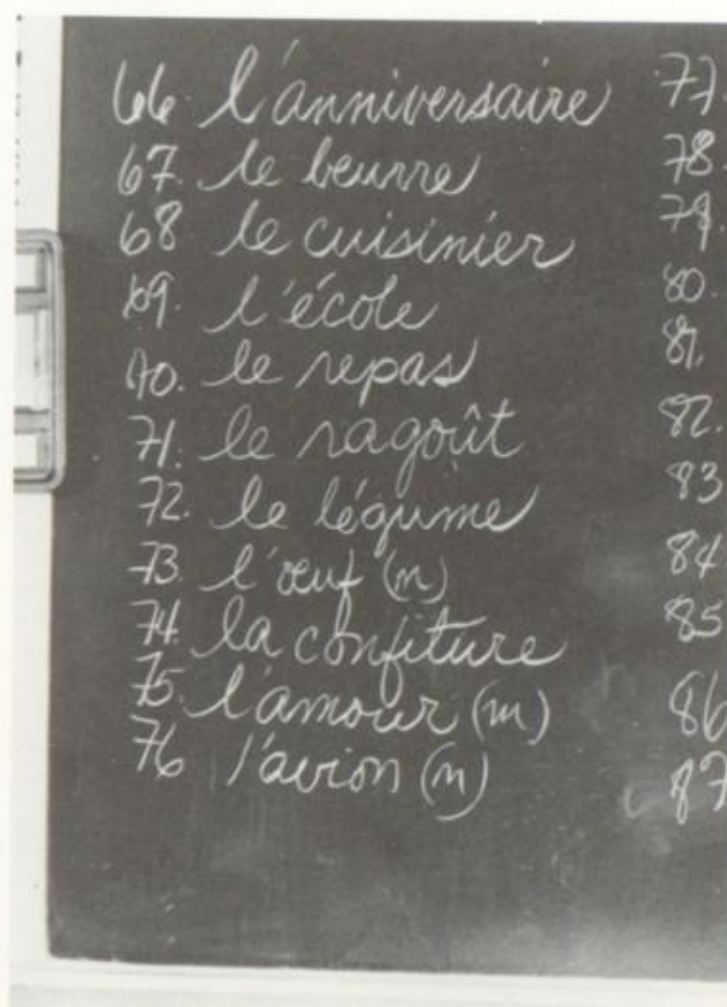 66. l'anniversaire
67. le beurre
68 le cuisinier
69. l'école
70. le repas
71. le ragoût
72. le légume
73. l'œuf (m)
74. la confiture
75. l'amour (m)
76 l'avion (m)
77
78
79.
80.
81.
82.
83
84
85
86
87